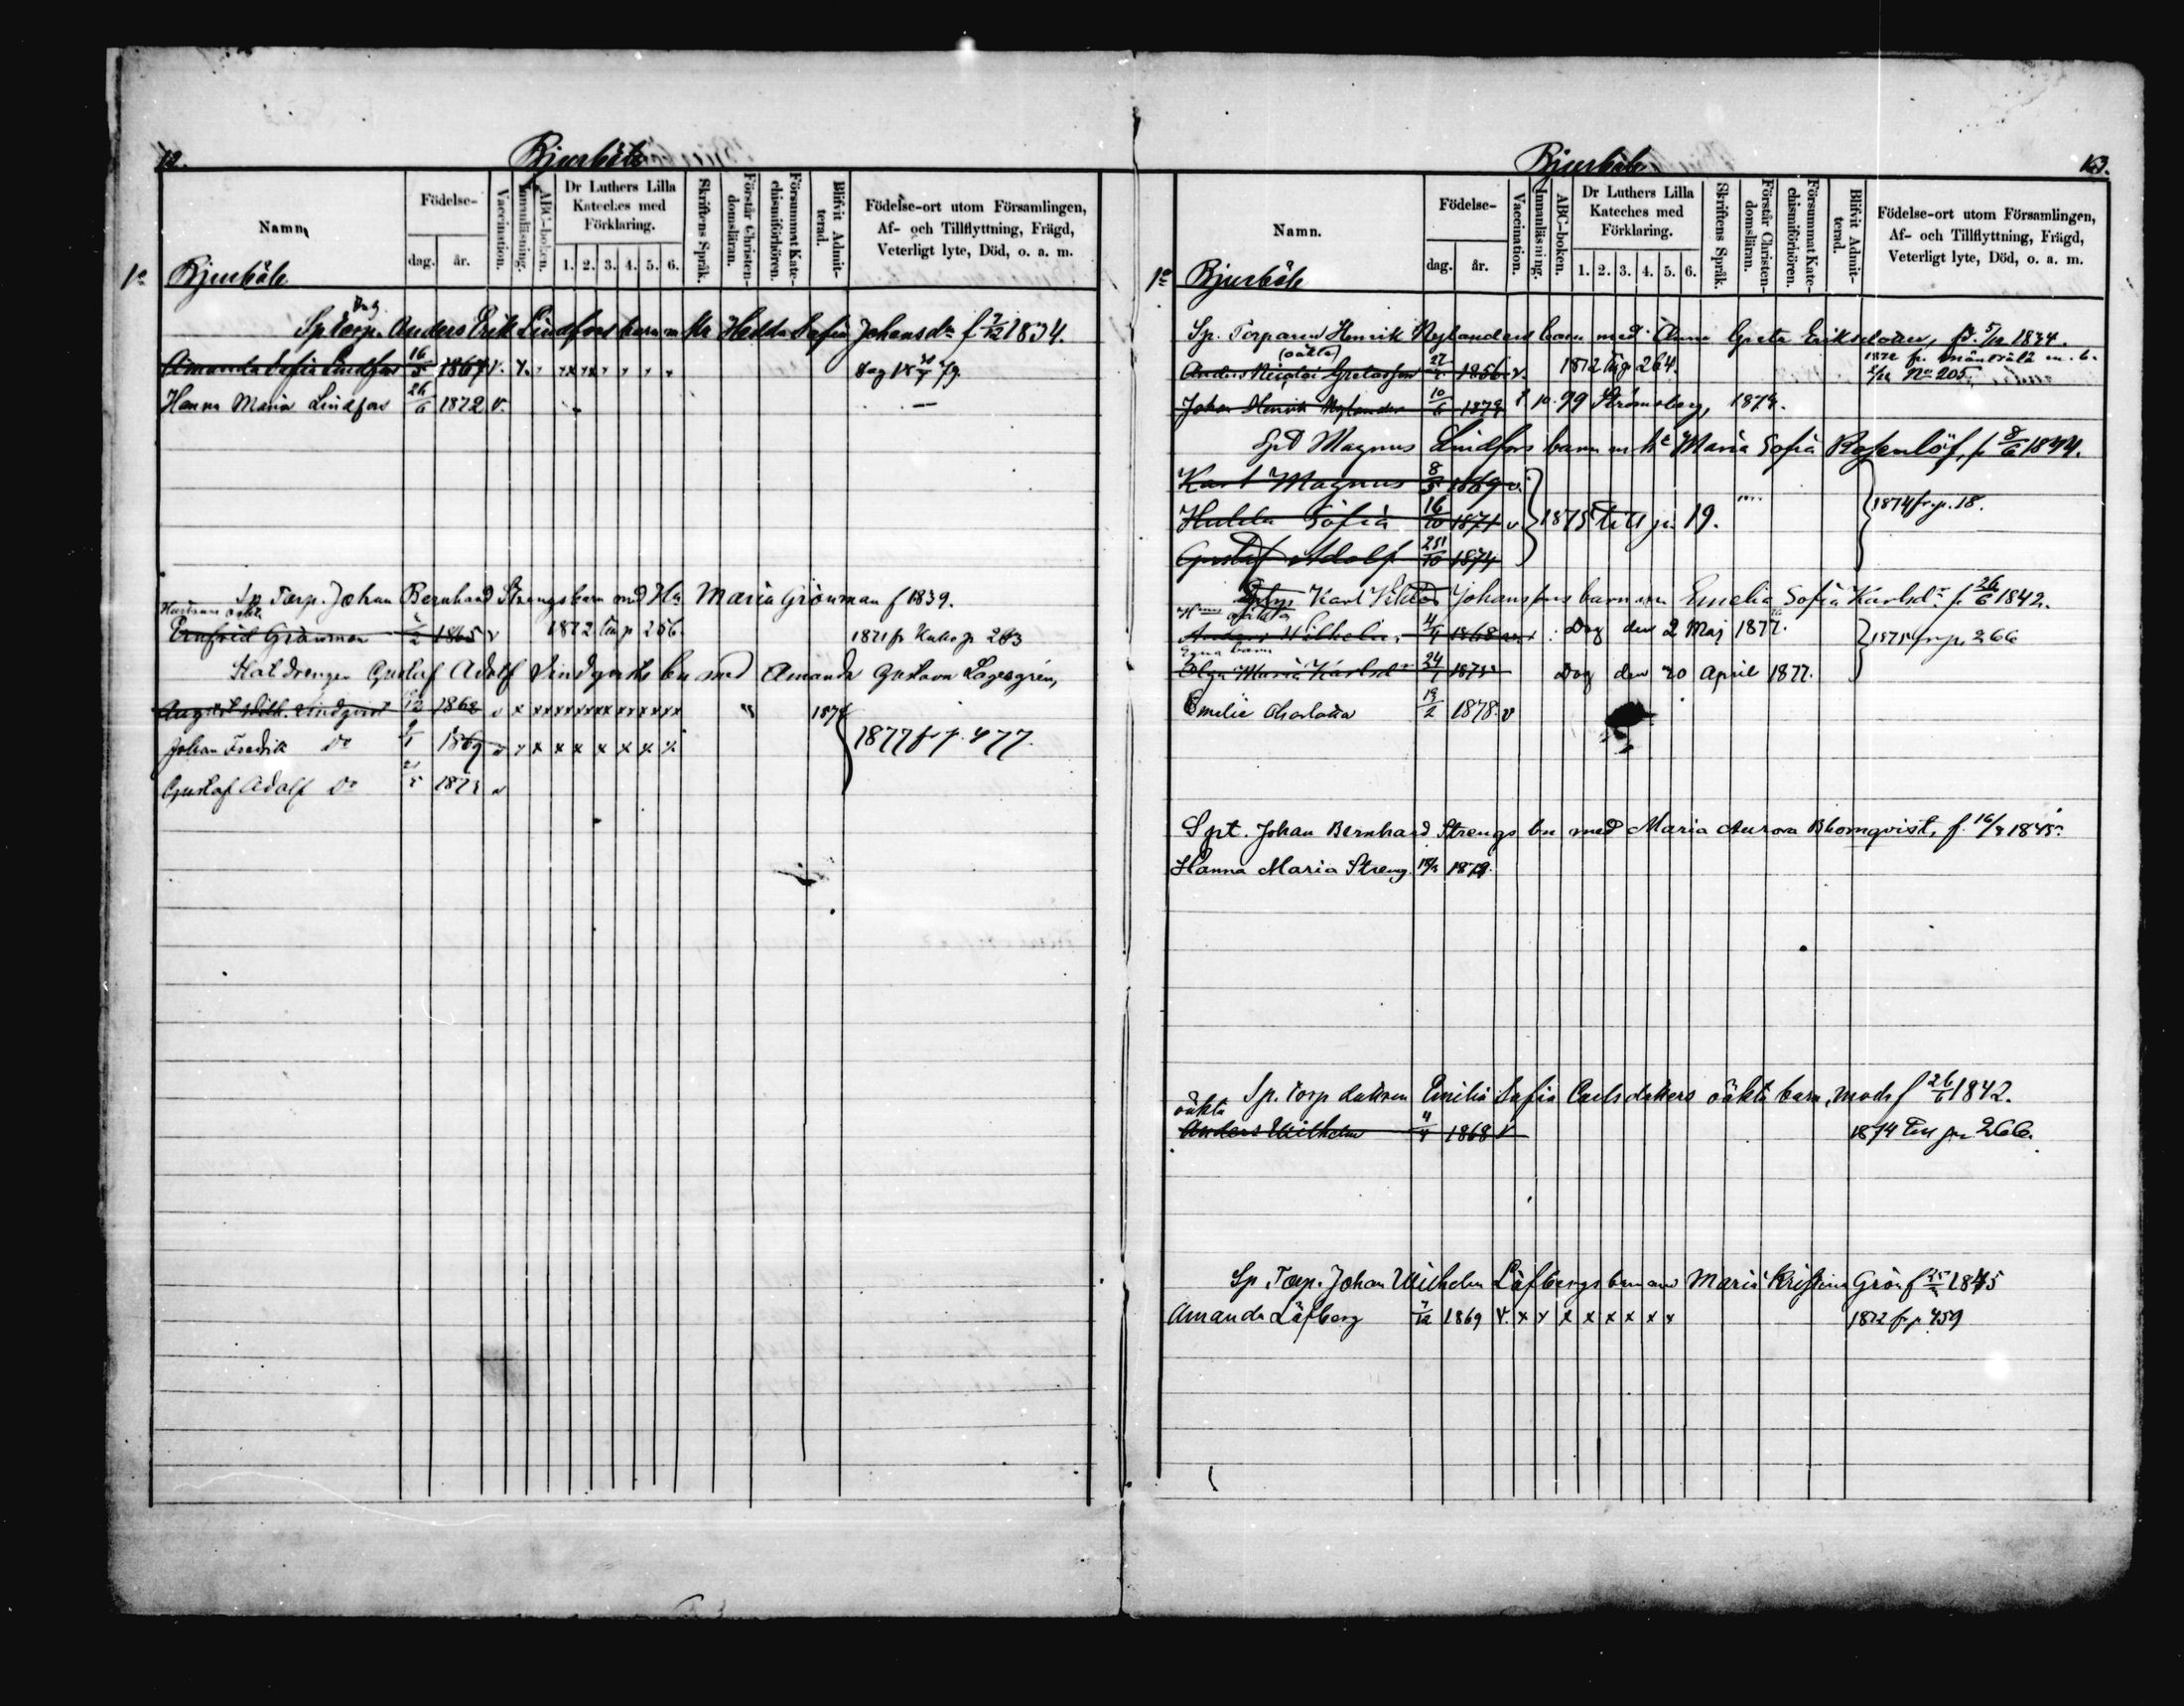 12.
Bjurböle
Namn.
Födelse-
dag.
år.
Vaccination.
Innanläsning.
ABC-boken.
Dr Luthers Lilla
Kateches med
Förklaring.
1. 2. 3. 4. 5. 6.
Skriftens Språk.
Förstår Christen-
domsläran.
Försummat Kate-
chismiförhören.
Blifvit Admit-
terad.
Födelse-ort utom Församlingen,
Af- och Tillflyttning, Frägd,
Veterligt lyte, Död, o. a. m.
Bjurböle
Sp Torp. Anders Erik Lindfors barn m Hu Hedda Sofia Johansdr f 7/12 1834.
Amanda Sofia Lindfors 16/5 1867 v.
Hanna Maria Lindfors 26/6 1872 v.
Sp Torp. Johan Bernhard Strengs barn med Hu. Maria Grönman f 1839.
Hustruns oäkta
Ernfrid Grönman 1865 v 1872 till p 256. 1871 fr p 263
Gustaf Adolf Lindqvists bn med Amanda Gustava Lagergren,
August Wilh. Lindqvist 1868 v x x x x x x x x x x x 1878
Johan Fredrik Do 1869 v x x x x x x x x 1877 fr p. 477.
Gustaf Adolf Do 1873 v
Bjurböle
163.
Namn.
Födelse-
dag.
år.
Vaccination.
Innanläsning.
ABC-boken.
Dr Luthers Lilla
Kateches med
Förklaring.
1. 2. 3. 4. 5. 6.
Skriftens Språk.
Förstår Christen-
domsläran.
Försummat Kate-
chismiförhören.
Blifvit Admit-
terad.
Födelse-ort utom Församlingen,
Af- och Tillflyttning, Frägd,
Veterligt lyte, Död, o. a. m.
Bjurböle
Sp. Torparen Henrik Nylanders barn med Anna Greta Eriksdotter, fd. 5/12 1834.
(oäkta)
Anders Nicolai Gretasson 1856 v. 1872 till p 264. No 205.
Johan Henrik Nylander 10/6 1879 Strömsberg, 1879.
Spt Magnus Lindfors barn m hu Maria Sofia Rosenlöf, f. 8/6 1844.
Karl Magnus 8/5 1869 v.
Hulda Sofia 16/10 1871 v 1875 till p. 19. 1874 fr. p. 18.
Gustaf Adolf 1874
Karl Viktor Johanssons barn m Emelia Sofia Karlsdr f 26/6 1842.
oäkta
Anders Wilhelm, 4/4 1868 Dog den 2 Maj 1877. 1875 fr p. 266
Egna barn
Olga Maria Karlsdr 24/1 1875 Dog den 20 April 1877.
Emelie Charlotta 19/2 1878. v
Spt. Johan Bernhard Strengs bn med Maria Aurora Blomqvist, f. 16/8 1845.
Hanna Maria Streng. 1879.
Sp. Torp dottren Emilia Sofia Carlsdotters oäkta barn, mod f 26/6 1842.
oäkta
Anders Wilhelm 4/4 1868 v 1874 till p 266.
Sp. Torp. Johan Wilhelm Löfbergs barn med Maria Kristina Grön f 1845
Amanda Löfberg 7/12 1869 v. x x x x x x x x 1872 fr p 459